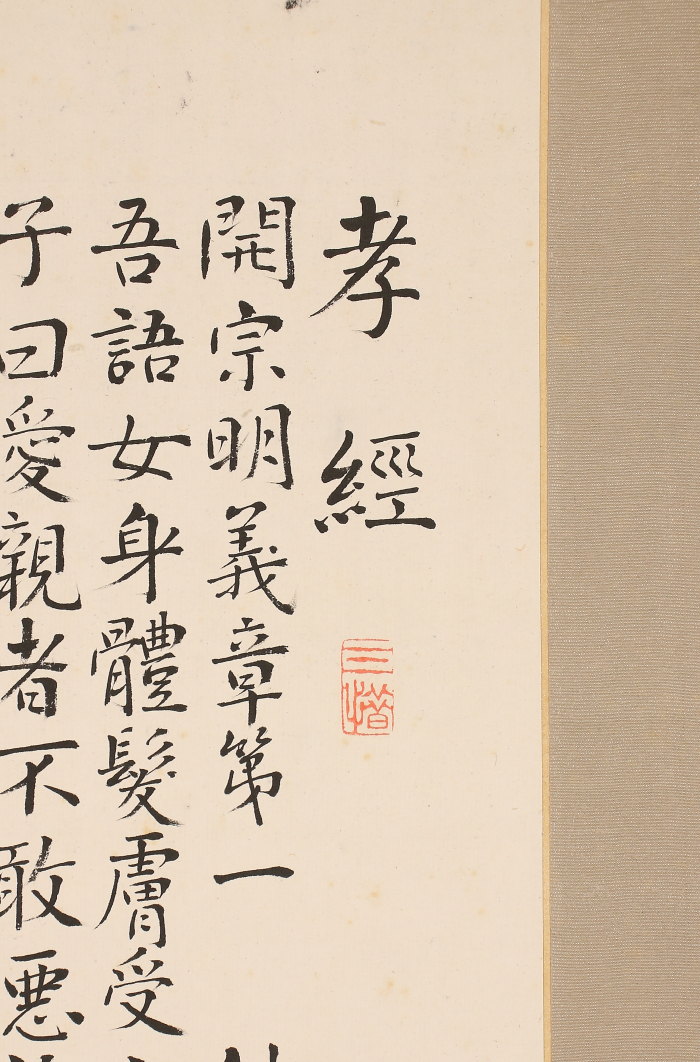 孝經
三惜
開宗明義章第一
吾語女身體髮膚受
子曰愛親者不敢惡